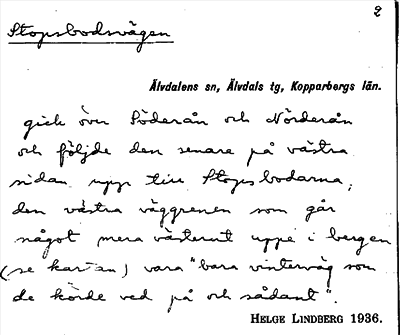 2
Stopsbodsvägen
Älvdalens sn, Älvdals tg, Kopparbergs län.
gick över Söderån och Nörderån
och följde den senare på västra
sidan upp till Stopsbodarna,
den västra väggrenen som går
något mera västerut uppe i bergen
(se kartan) vara "bara vinterväg som
de körde ved på och sådant".
HELGE LINDBERG 1936.